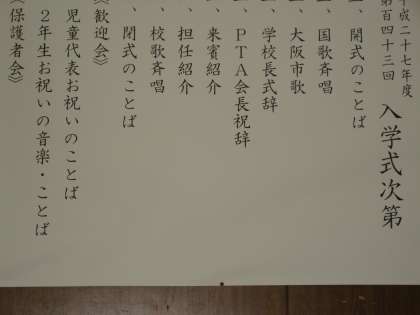 平成二十七年度
第百四十三回
入学式次第
一、開式のことば
一、国歌斉唱
一、大阪市歌
一、学校長式辞
一、PTA会長祝辞
一、来賓紹介
一、担任紹介
一、校歌斉唱
一、閉式のことば
《歓迎会》
児童代表お祝いのことば
２年生お祝いの音楽・ことば
《保護者会》